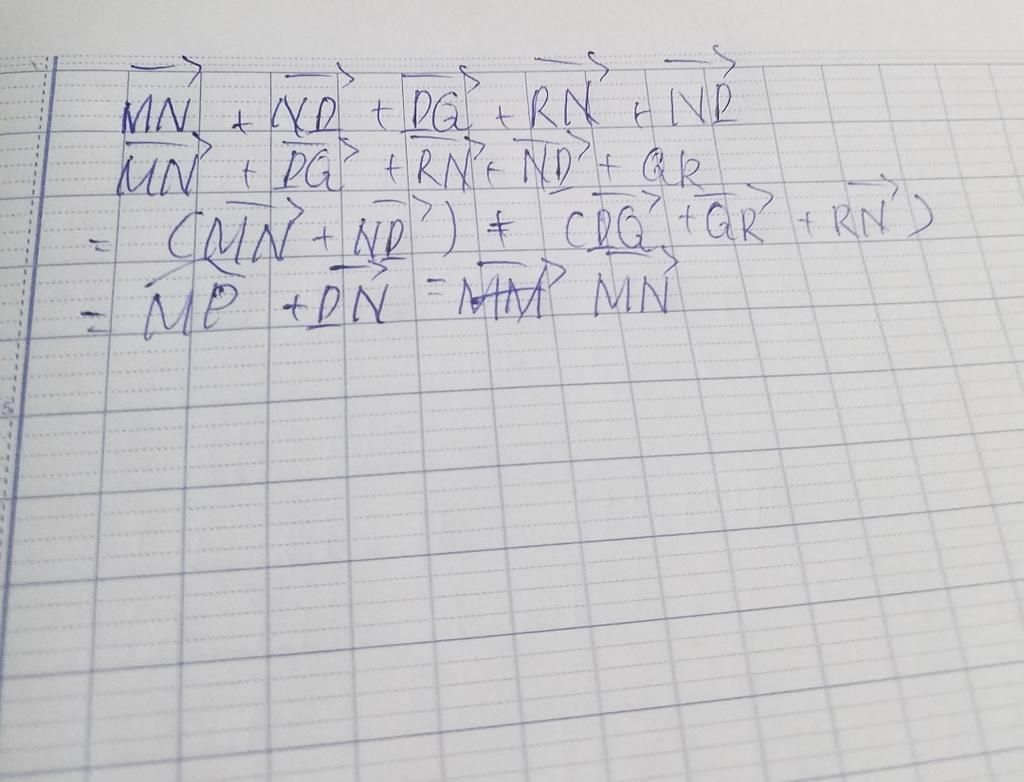 MN + ND + DQ + RN + ND
MN + DQ + RN + ND + QR
= (MN + ND) + (DQ + QR + RN)
= MP + DN = MM MN